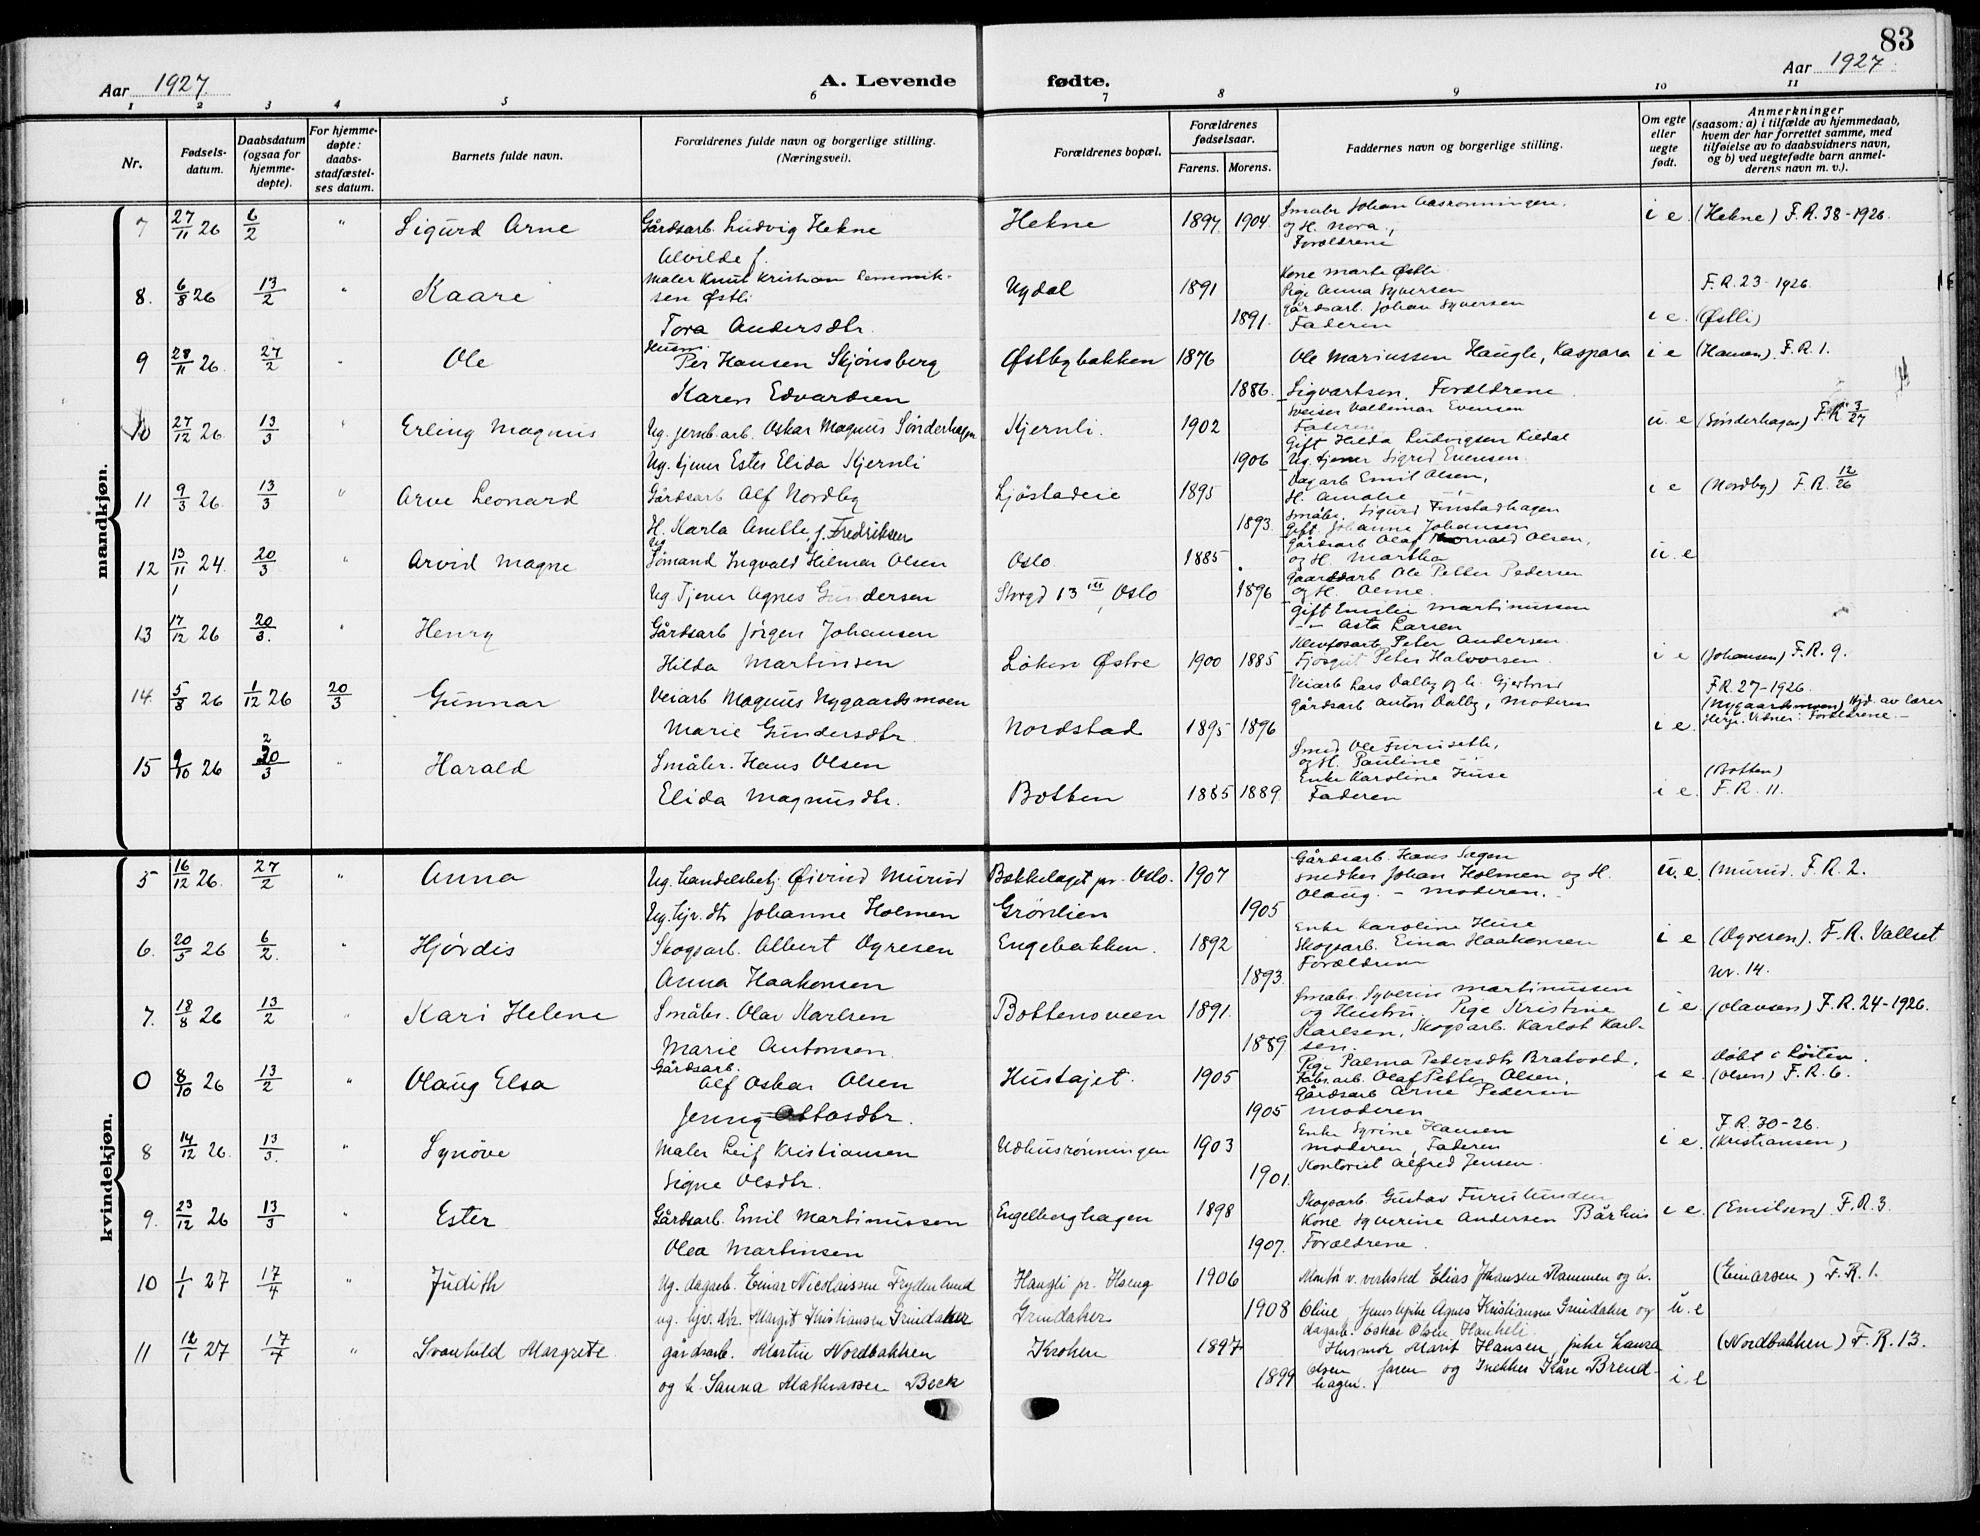 83
Aar 1927 A. Levende fødte. Aar 1927
1 2 3 4 5 6 7 8 9 10 11
Nr. | Fødselsdatum. | Daabsdatum (ogsaa for hjemmedøpte). | For hjemmedøpte: daabsstadfæstelses datum. | Barnets fulde navn. | Forældrenes fulde navn og borgerlige stilling. (Næringsvei). | Forældrenes bopæl. | Forældrenes fødselsaar. Farens. Morens. | Faddernes navn og borgerlige stilling. | Om egte eller uegte født. | Anmerkninger (saasom: a) i tilfælde av hjemmedaab, hvem der har forrettet samme, med tilføielse av to daabsvidners navn, og b) ved uegtefødte barn anmelderens navn m. v.).
mandkjøn.
7 27/11 26 6/2 " Sigurd Arne Gårdsarb. Ludvig Hekne Hekne 1894 1904 Småbr. Johan Aasrønningen, i e (Hekne) F.R. 38-1926.
og H. Nora,
Alvilde f. Forældrene
8. 6/8 26 13/2 " Kaare Maler Knut Kristian Østli Ugdal 1891 Kone Marte Østli F.R. 23-1926.
Pige Anna Syversen
Tora Andersdtr. 1891. Gårdsarb. Johan Syversen i e (Østli)
Faderen
9 28/11 26. 27/2 " Ole Husm. Per Hansen Skjønsberg Østbybakken 1876 Ole Mariussen Haugle, Kaspara i e (Hansen). F.R. 1.
Karen Edvardsen 1886. Sigvartsen. Forældrene
10 27/12 26. 13/3 " Erling Magnus Ug. jernb.arb. Oskar Magnus Sønderhagen Kjernli. 1902 Sveiser Valdemar Evensen u. e (Sønderhagen) F.R. 3/27
Faderen
Gift Hilda Ludvigsen Kildal
Ug. tjener Ester Elida Kjernli 1906 Ug. tjener Sigrid Evensen.
11 9/3 26. 13/3 " Arve Leonard Gårdsarb Alf Nordby Ljøstadeie 1895 Dagarb Emil Olsen, i e (Nordby) F.R. 12/26
H. Amalie
H. Karla Anette f. Fredriksen 1893. Småbr. Sigurd Finstadhagen
Gift. Johanne Johansen
12 13/11 24. 20/3 " Arvid Magne Ug Sømand Ingvald Hilmar Olsen Oslo 1885 Gårdsarb Olaf Thorvald Olsen, u. e
og H. Martha
Ug Tjener Agnes Gundersen Storgd 13 III, Oslo 1896 Gaardsarb Ole Petter Pedersen
og H. Anne.
13 17/12 26 20/3. " Henry Gårdsarb Jørgen Johansen Gift Emilie Martinussen
— Asta Larsen
Hilda Martinsen Løken Østre 1900 1885 Klevfosarb Peter Andersen. i e (Johansen) F.R. 9.
Fjøsgut Peter Halvorsen.
14. 5/8 26 1/12 26 20/3 Gunnar Veiarb Magnus Nygaardsmoen Veiarb Lars Dalby og h. Gjertrud F.R. 27-1926.
Gårdsarb Anton Dalby, Moderen (Nygaardsmoen) Hjd. av lærer
Marie Gundersdtr. Nordstad 1895 1896 i e. Vidner: Forældrene.—
15 9/10 26 20/3 " Harald Småbr. Hans Olsen Smed Ole Furuseth,
og H. Pauline
Enke Karoline Huse (Botten)
Elida Magnusdtr. Botten 1885 1889. Faderen i e. F.R. 11.
kvindekjøn.
5 16/12 26. 27/2 " Anna Ug. handelsbetj. Øivind Murud Bækkelaget pr. Oslo. 1907 Gårdsarb. Hans Sagen u. e. (Murud. F.R. 2.
Snedker Johan Holmen og H.
Ug. hjv. dtr Johanne Holmen Grønlien 1905 Olaug. — Moderen.
6. 20/5 26 6/2. " Hjørdis Skogsarb. Albert Dyresen Engebakken. 1892 Enke Karoline Huse i e (Dyresen). F.R. Vallset
Skogsarb. Einar Haakonsen
Anna Haakonsen 1893. Forældrene nr. 14.
7. 18/8 26 13/2 " Kari Helene Småbr. Olav Karlsen Bottensveen 1891. Småbr. Syverin Martinussen i e. (Olavsen) F.R. 24-1926.
og Hustru. Pige Kristine
Marie Antonsen. 1889 Karlsen, Skogsarb. Karlot Karlsen.
0 8/10 26 13/2 " Olaug Elsa Gårdsarb. Alf Oskar Olsen Hustajet. 1905 Pige Palma Pedersdtr Bratvold. Døbt i Løiten.
Fabr.arb. Olaf Petter Olsen, i e (Olsen) F.R. 6.
Gårdsarb Arne Pedersen
Jenny Ottosdtr. 1905 Moderen
8 14/12 26. 13/3. " Synøve Maler Leif Kristiansen Udhusrønningen 1903 Enke Syrine Hansen i e. F.R. 30-26.
Moderen, Faderen (Kristiansen)
Signe Olsdtr. 1901. Kontorist Alfred Jensen.
9. 23/12 26 13/3 " Ester Gårdsarb. Emil Martinussen Engelberghagen 1898 Skogsarb. Gustav Furulunden
Kone Syverine Andersen Bårhus i e. (Emilsen) F.R. 3.
Olea Martinsen 1907. Forældrene.
10 1/1 27 17/4 " Judith Ug. dagarb. Einar Nicolaissen Frydenlund Haugli pr. Hseng 1906 Montør v. verksted Elias Johansen Rammen og h. (Einarsen) F.R. 1.
ug. hjv. dtr. Margit Kristiansen Grindaker Grindaker 1908 Oline, Agnes Kristiansen Grindaker og u. e
dagarb. Oskar Olsen, Haukeli.
11 12/1 27 17/4 " Svanhild Margrete gårdsarb. Martin Nordbakken Kroken 1897 Husmor Marit Hansen, pike Hansa (Nordbakken) F.R. 13.
og h. Sanna Mathiassen Beck 1899 Olsen, faren og Snekker Kåre Brendhagen. i. e